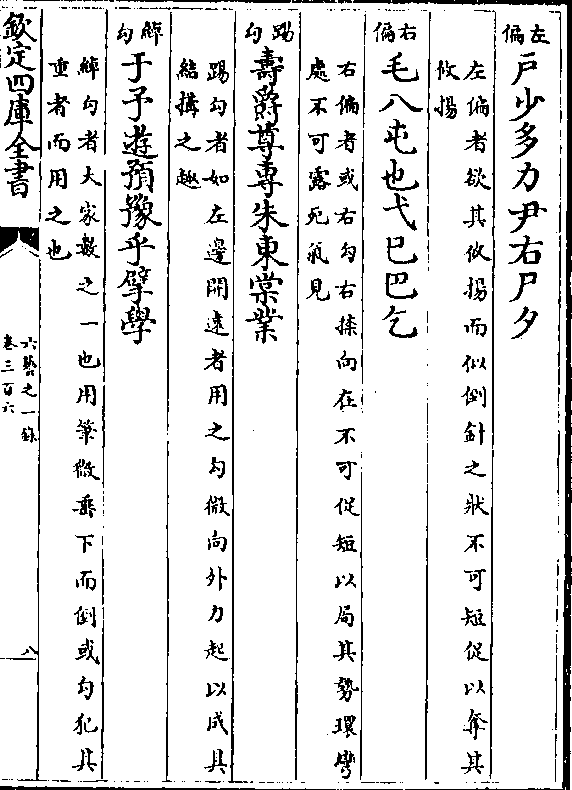 左偏
戸少多力尹右尸夕
左偏者欲其攸揚而似倒針之狀不可短促以奪其
攸揚
右偏
毛八屯也弋巳巴乞
右偏者或右勾右揉向在不可促短以局其勢環彎
處不可露死氣見
踢勾
壽爵尊専朱東棠業
踢勾者如左邊開遠者用之勾微向外力起以成其
結搆之趣
綽勾
于予逰預豫乎孽學
綽勾者大家數之一也用筆微垂下而倒或勾犯其
重者而用之也
欽定四庫全書
六藝之一錄
卷三百六
八